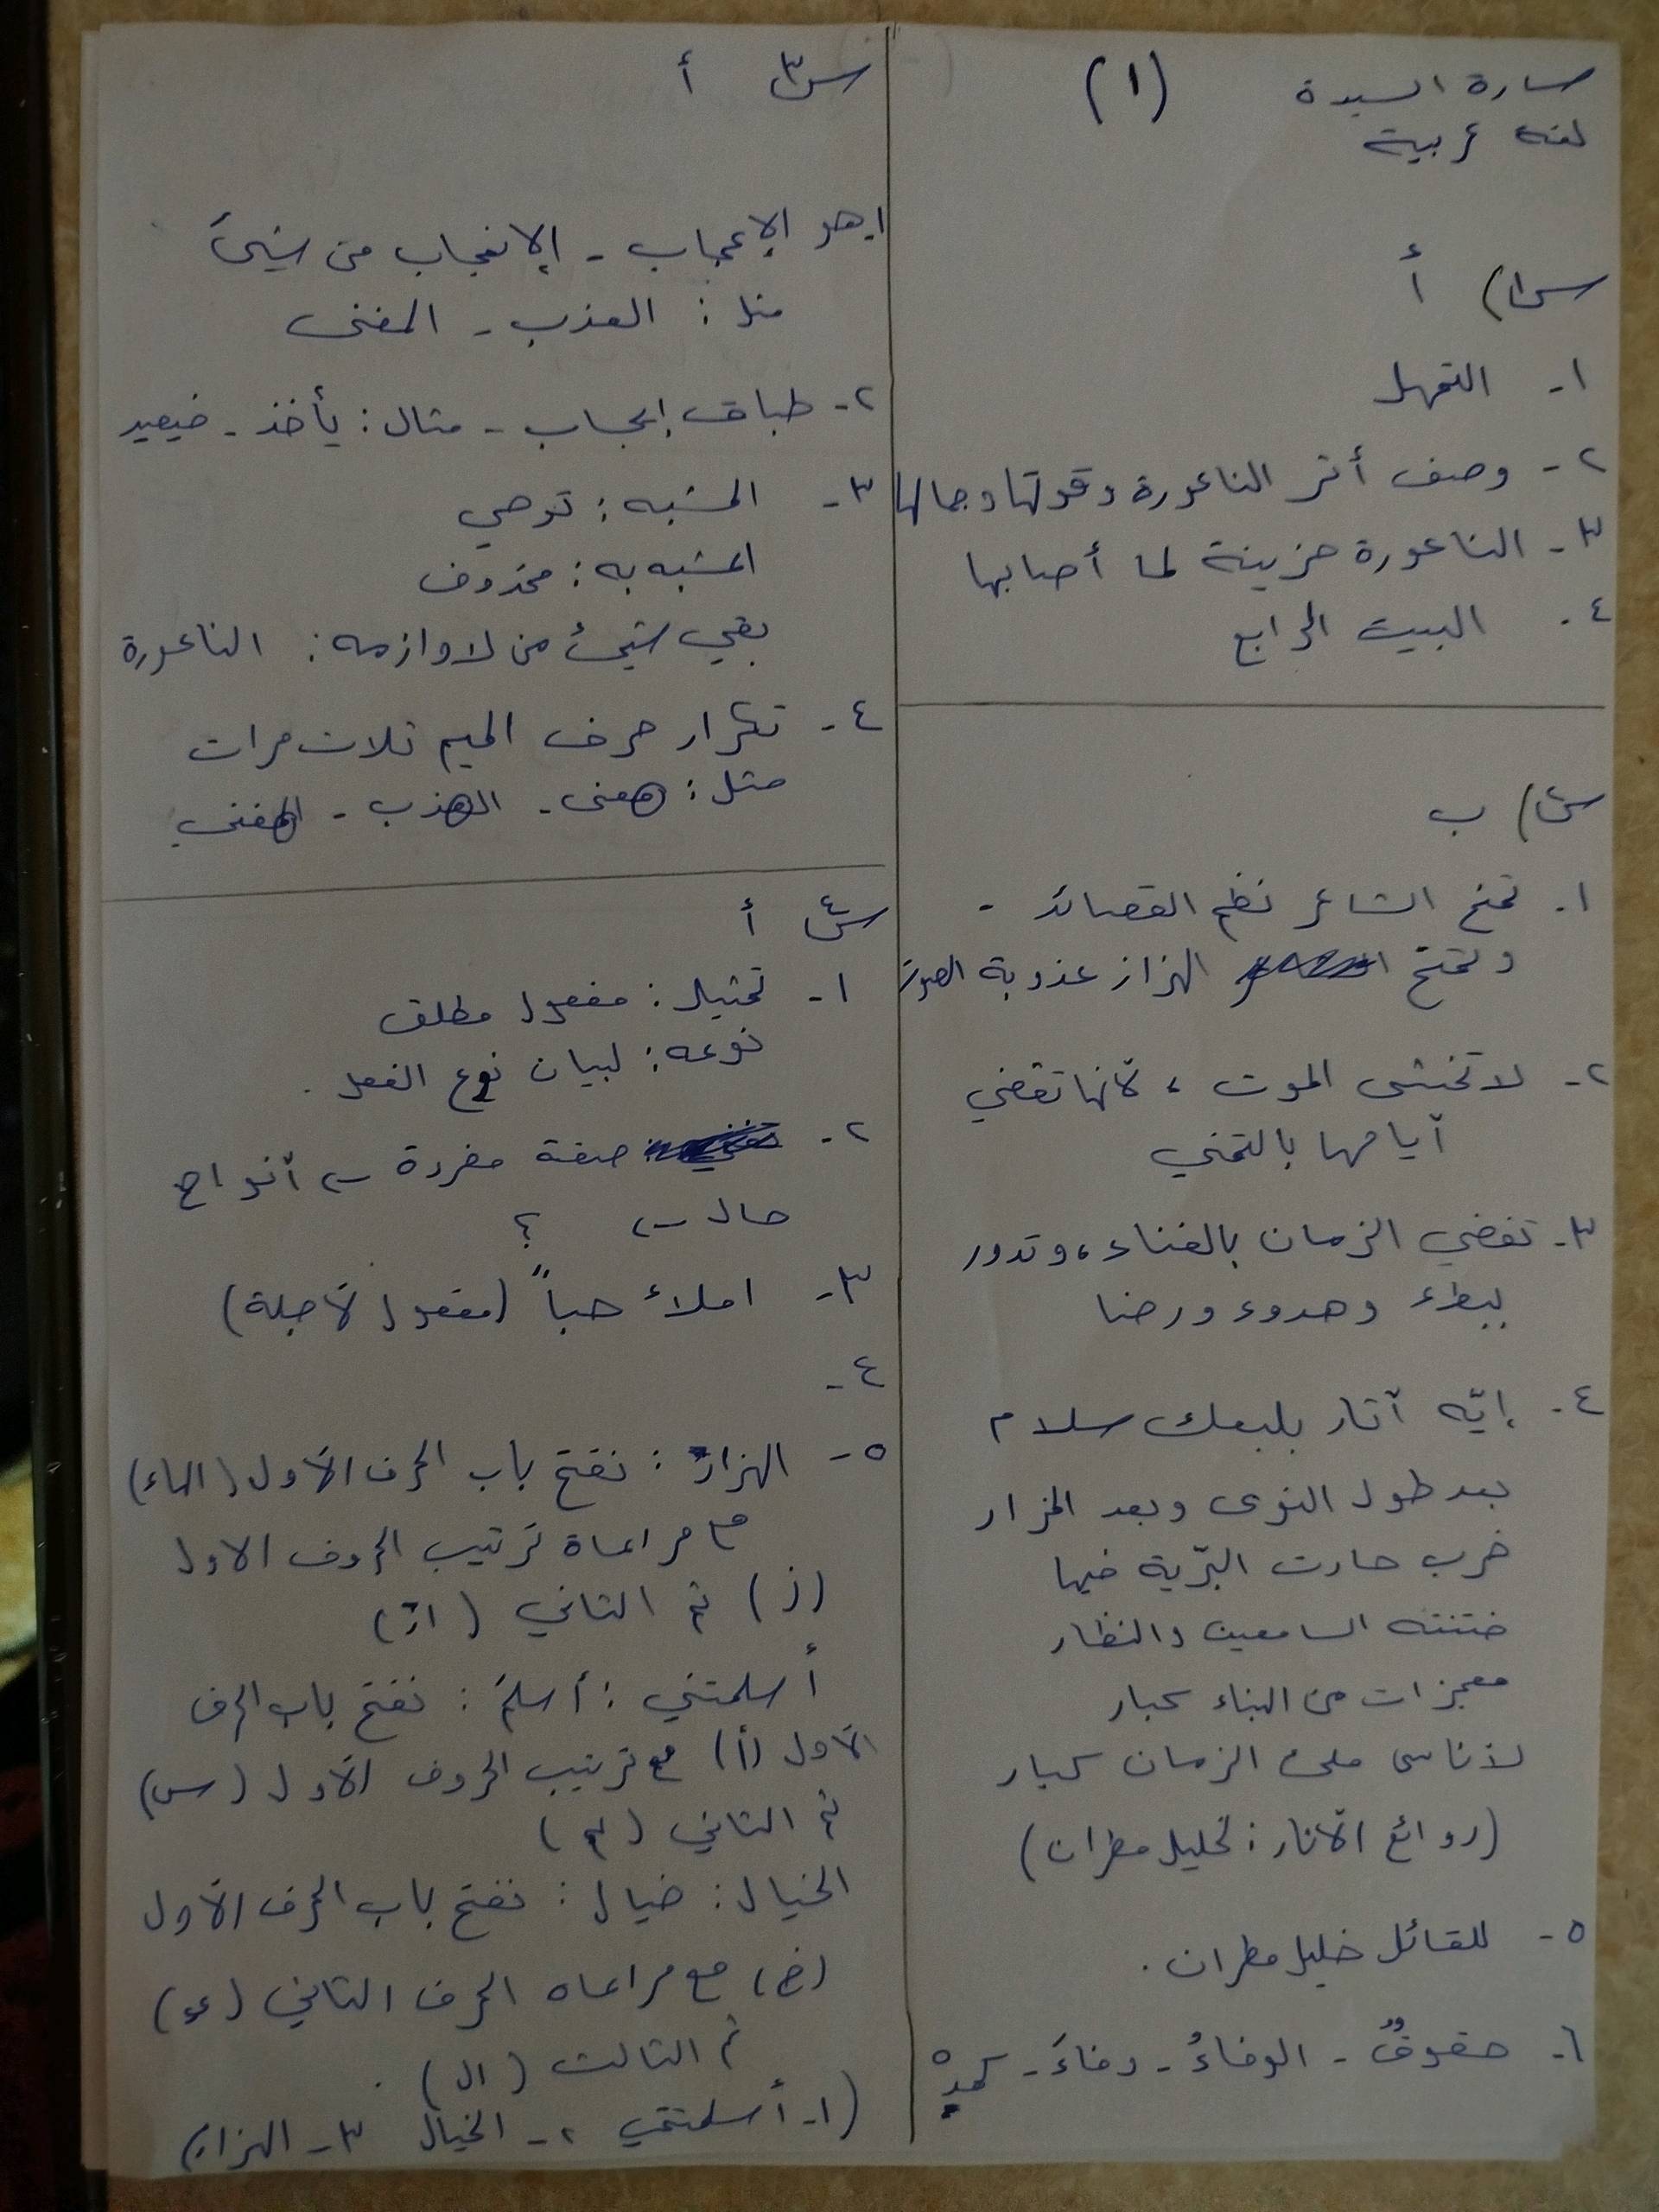 سارة السيدة (١)
لغة عربية
س١) أ
١- التمهل
٢- وصف أثر الناعورة وقوتها وجمالها
٣- الناعورة حزينة لما أصابها
٤. البيت الرابع
ب
١. تمنح الشاعر نظم القصائد -
وتمنح الهزاز عذوبة الصوت
٢- لا تخشى الموت، لأنها تقضي
أيامها بالتمني
٣- تقضي الزمان بالغناء، وتدور
ببطء وهدوء ورضا
٤. إيّه آثار بلبعك سلام
بعد طول النوى وبعد المزار
خرب حارت البّرية فيها
فتنته السامعين والنظار
معجزات من البناء كبار
لأناس ملء الزمان كبار
(روائع الآثار: تحليل مطران)
٥- للقائل خليل مطران.
٦- حقوقٌ - الوفاءُ - وفاءَ -
س٣ أ
١. هو الإعجاب - الإنعجاب من شيئ
مثل: العذب - المغنى
٢- طباق إيجاب - مثال: يأخذ - فيعيد
٣- المشبه: توحي
المشبه به: محذوف
بقي شيئ من لاوازمه: الناعورة
٤- تكرار حرف الميم ثلاث مرات
مثل: معنى - المذب - المغني
س٤ أ
١- تمثيل: مفعول مطلق
نوعه: لبيان نوع الفعل.
٢- صفة مفردة ← أنواح
حال ← ؟
٣- املأ حباً (مفعول لأجلة)
٤-
٥- الهزاز: نفتح باب الحرف الأول (الهاء)
مع مراعاة ترتيب الحروف الاول
(ز) ثم الثاني (از)
أسلمتني: أسلمَ: نفتح باب الحرف
الأول (أ) مع ترتيب الحروف الأول (س)
ثم الثاني (لم)
الخيال: خيال: نفتح باب الحرف الأول
(خ) مع مراعاه الحرف الثاني (ي)
ثم الثالث (ال).
(١- أسلمتني ٢- الخيال ٣- الهزاز)